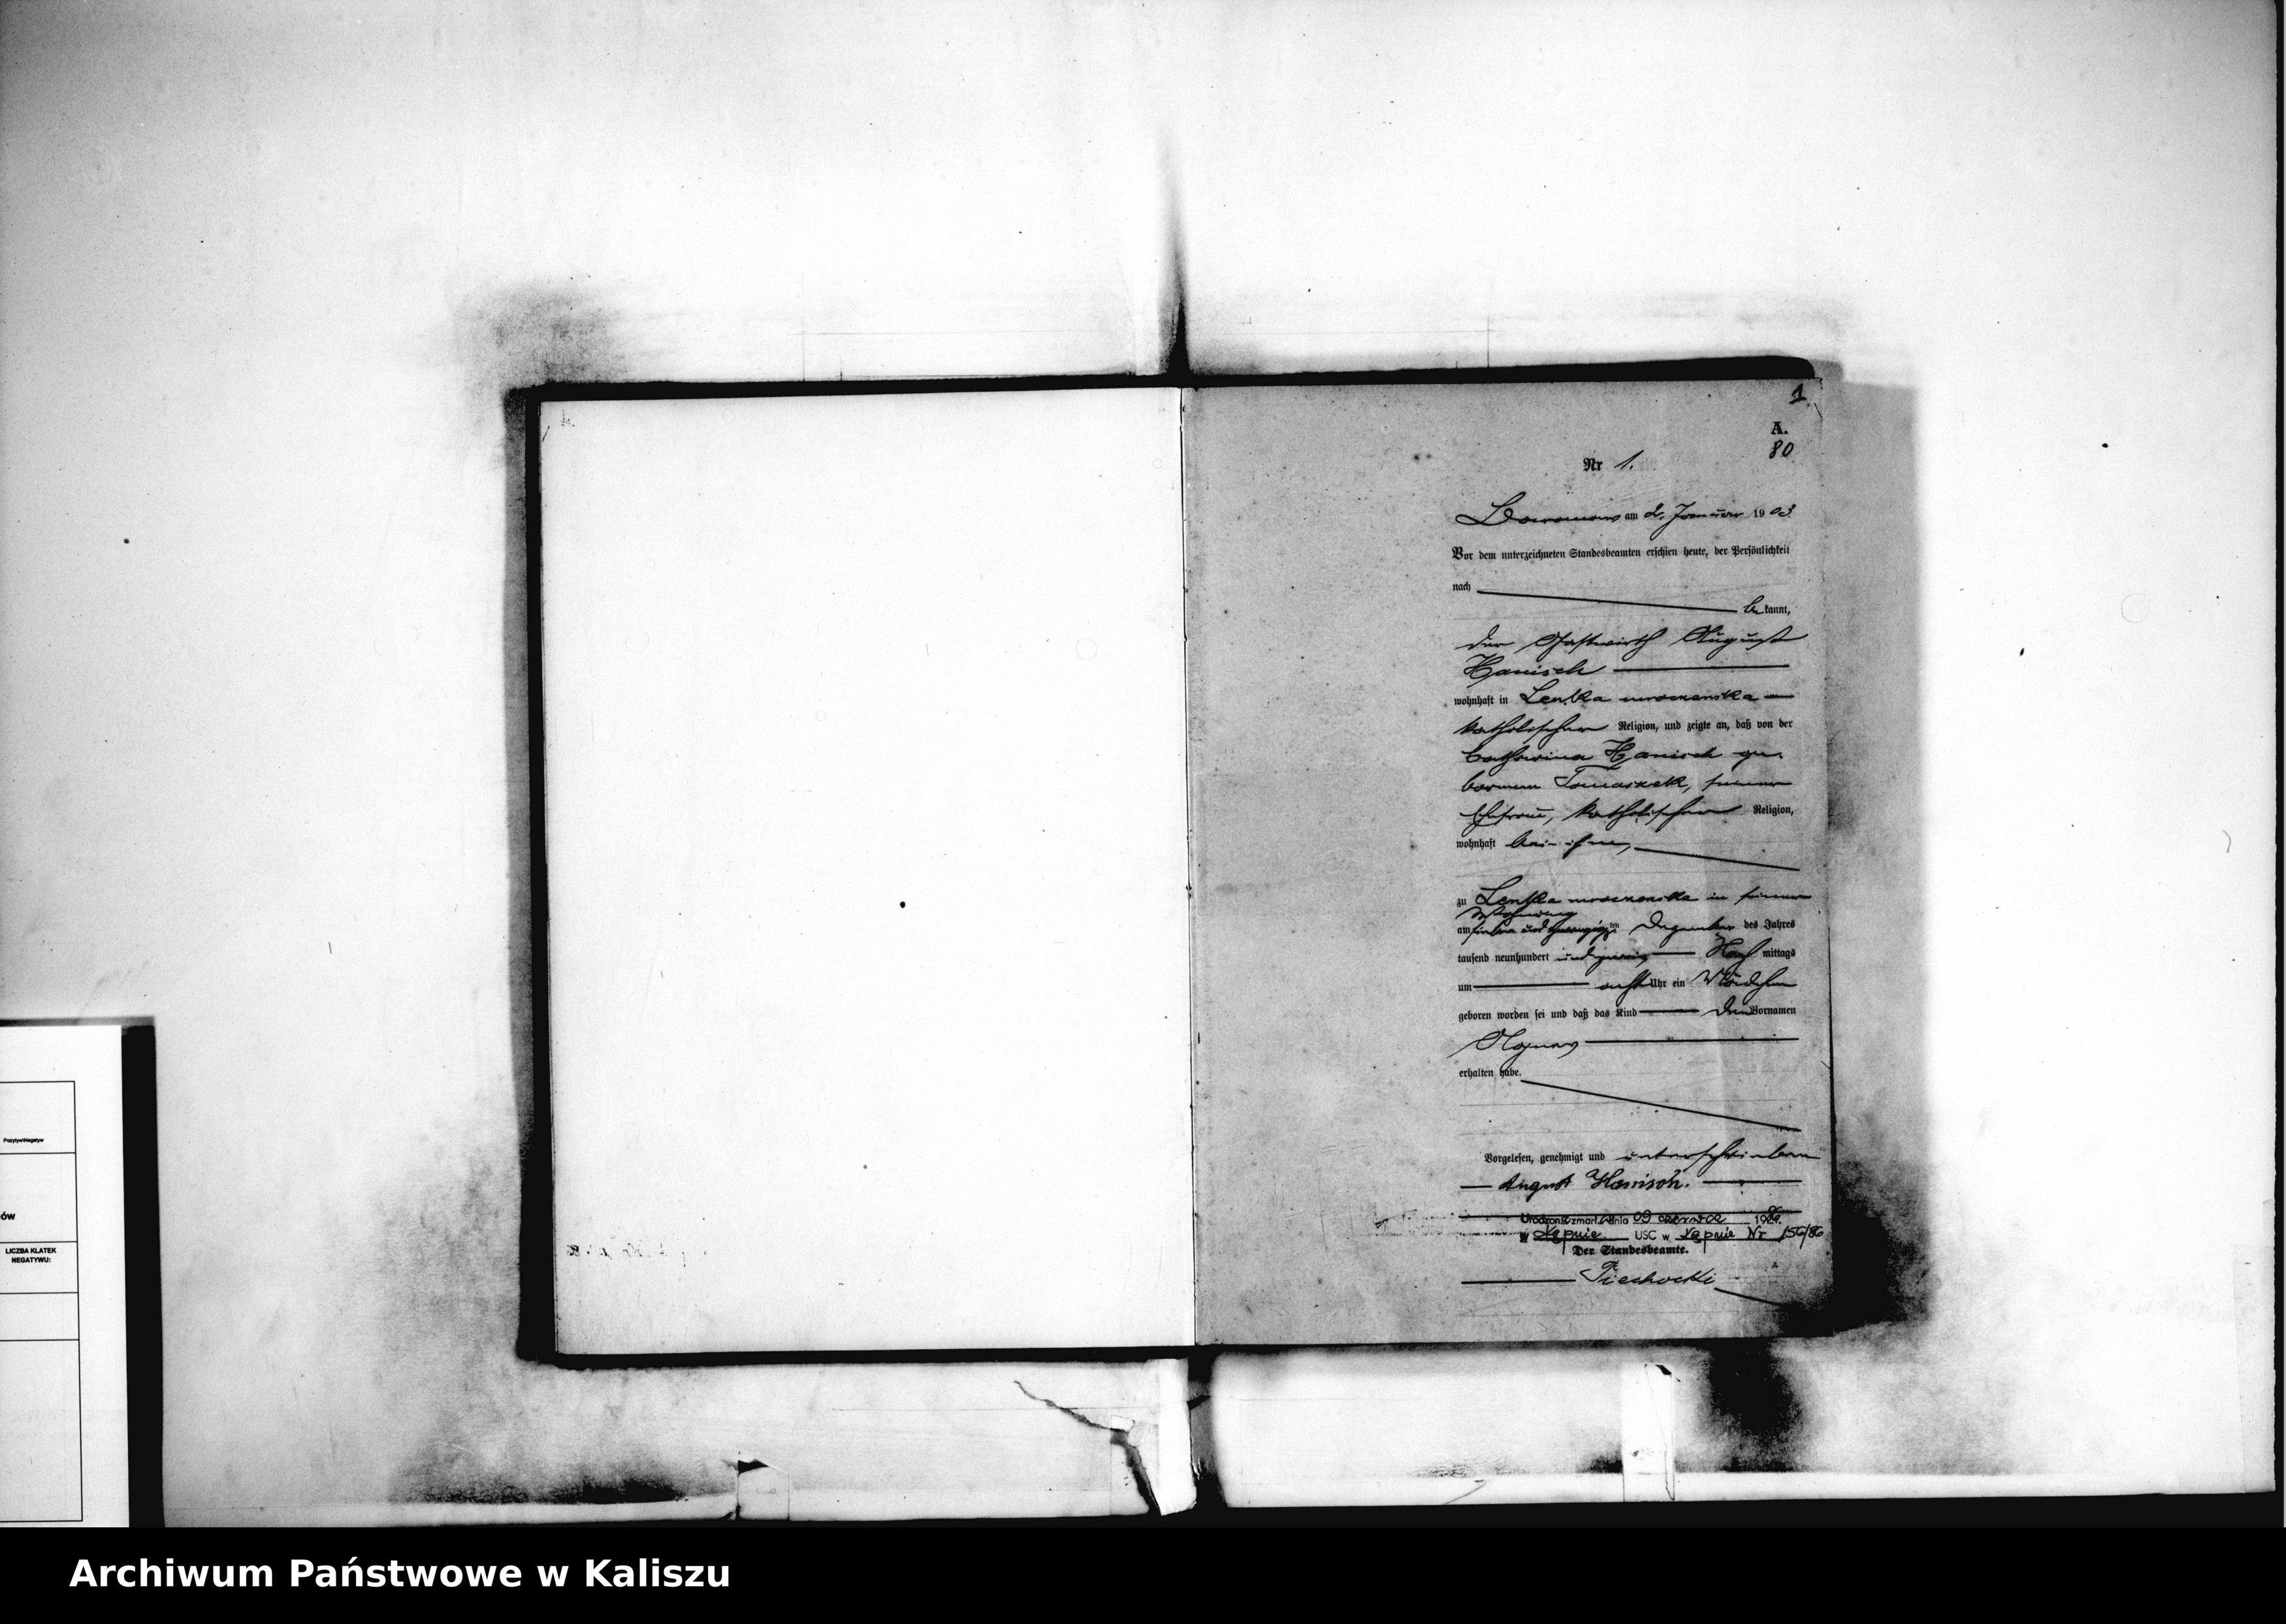 1
A.
80
Nr 1.
am 2. Januar 1903
Vor dem unterzeichneten Standesbeamten erschien heute, der Persönlichkeit
nach
be kannt,
der Gastwirth August
Hanisch
wohnhaft in Lenka mroczenska
katholischer Religion, und zeigte an, daß von der
Catharina Hanisch ge-
borenen Tomaszek, seiner
Ehefrau, katholischer Religion,
wohnhaft bei ihm,
zu Lenka mroczenska in seiner
Wohnung
am sieben und zwanzigsten Dezember des Jahres
tausend neunhundert und zwei Nach mittags
um acht Uhr ein Mädchen
geboren worden sei und daß das Kind den Vornamen
Agnes
erhalten habe.
Vorgelesen, genehmigt und unterschrieben
August Hanisch.
zmarł dnia 09 czerwca 1986
w Kępnie USC w Kępnie Nr 156/86
Der Standesbeamte.
Piechocki
Pozytyw/Negatyw
ÓW
LICZBA KLATEK
NEGATYWU:
Archiwum Państwowe w Kaliszu